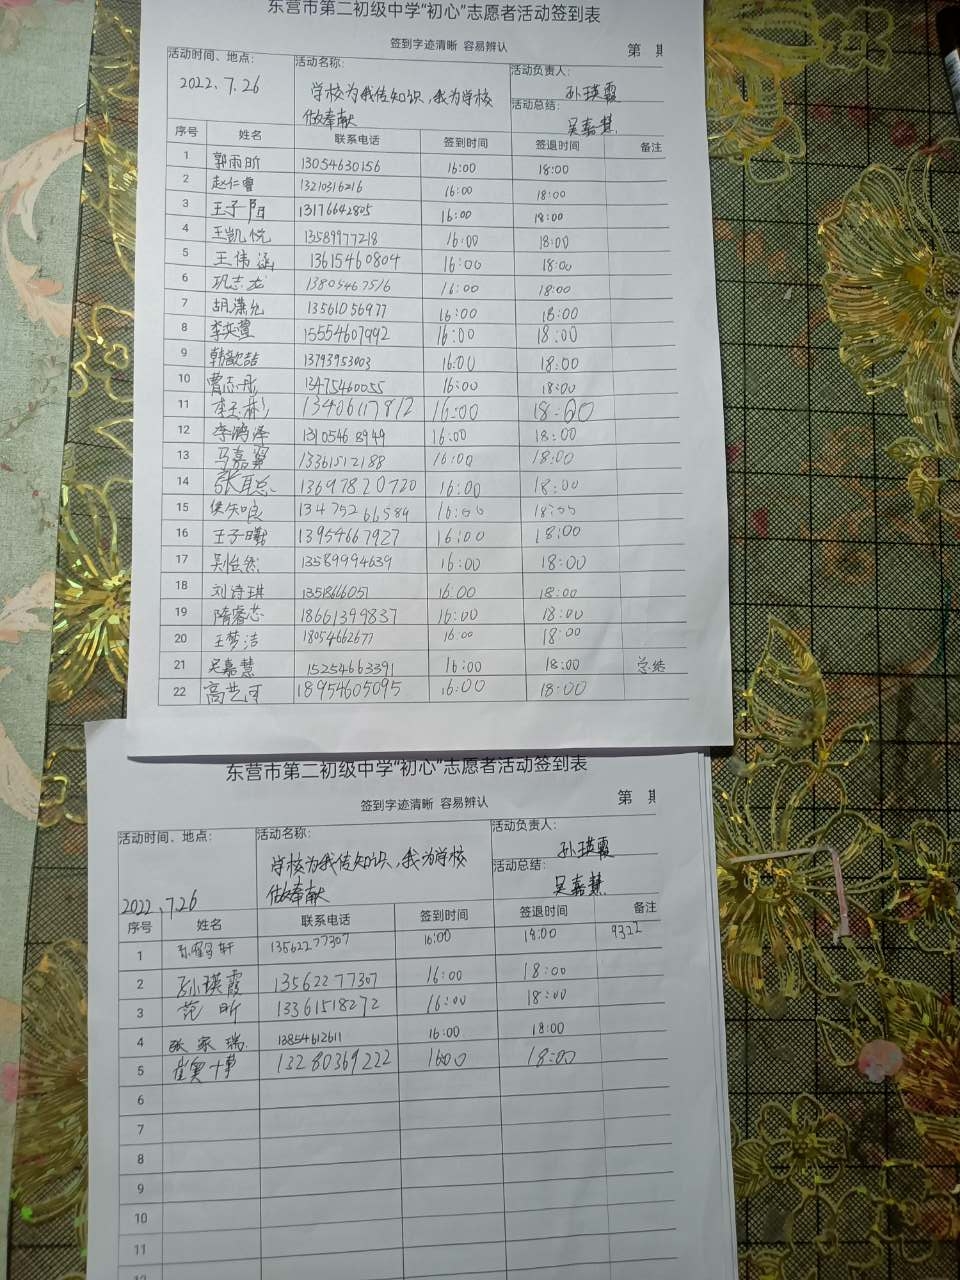 东营市第二初级中学“初心”志愿者活动签到表
签到字迹清晰 容易辨认
第 期
活动时间、地点: 活动名称: 活动负责人:
2022.7.26 学校为我传知识,我为学校做奉献 孙瑛霞
活动总结:
吴嘉慧
序号 姓名 联系电话 签到时间 签退时间 备注
1 郭雨昕 13054630156 16:00 18:00
2 赵仁睿 13210316216 16:00 18:00
3 王子阳 13176642805 16:00 18:00
4 王凯悦 13589977218 16:00 18:00
5 王伟涵 13615460804 16:00 18:00
6 巩志龙 13805467516 16:00 18:00
7 胡潇允 13561056977 16:00 18:00
8 李奕萱 15554607992 16:00 18:00
9 韩歆喆 13793953003 16:00 18:00
10 曹志彤 13475460055 16:00 18:00
11 13406117812 16:00 18:00
12 李鸿泽 13105468949 16:00 18:00
13 马嘉翼 13361512188 16:00 18:00
14 张耳总 13697820720 16:00 18:00
15 13475266589 16:00 18:00
16 王子曦 13954667927 16:00 18:00
17 吴怡然 13589994639 16:00 18:00
18 刘诗琪 1351866051 16:00 18:00
19 隋睿芯 18661399837 16:00 18:00
20 王梦洁 18054662677 16:00 18:00
21 吴嘉慧 15254663391 16:00 18:00 总结
22 高艺可 18954605095 16:00 18:00
东营市第二初级中学“初心”志愿者活动签到表
签到字迹清晰 容易辨认
第 期
活动时间、地点: 活动名称: 活动负责人:
2022.7.26 学校为我传知识,我为学校做奉献 孙瑛霞
活动总结:
吴嘉慧
序号 姓名 联系电话 签到时间 签退时间 备注
1 13562277307 16:00 18:00 9322
2 孙瑛霞 13562277307 16:00 18:00
3 范昕 13361518272 16:00 18:00
4 张家瑞 13854612611 16:00 18:00
5 13280369222 16:00 18:00
6
7
8
9
10
11
12